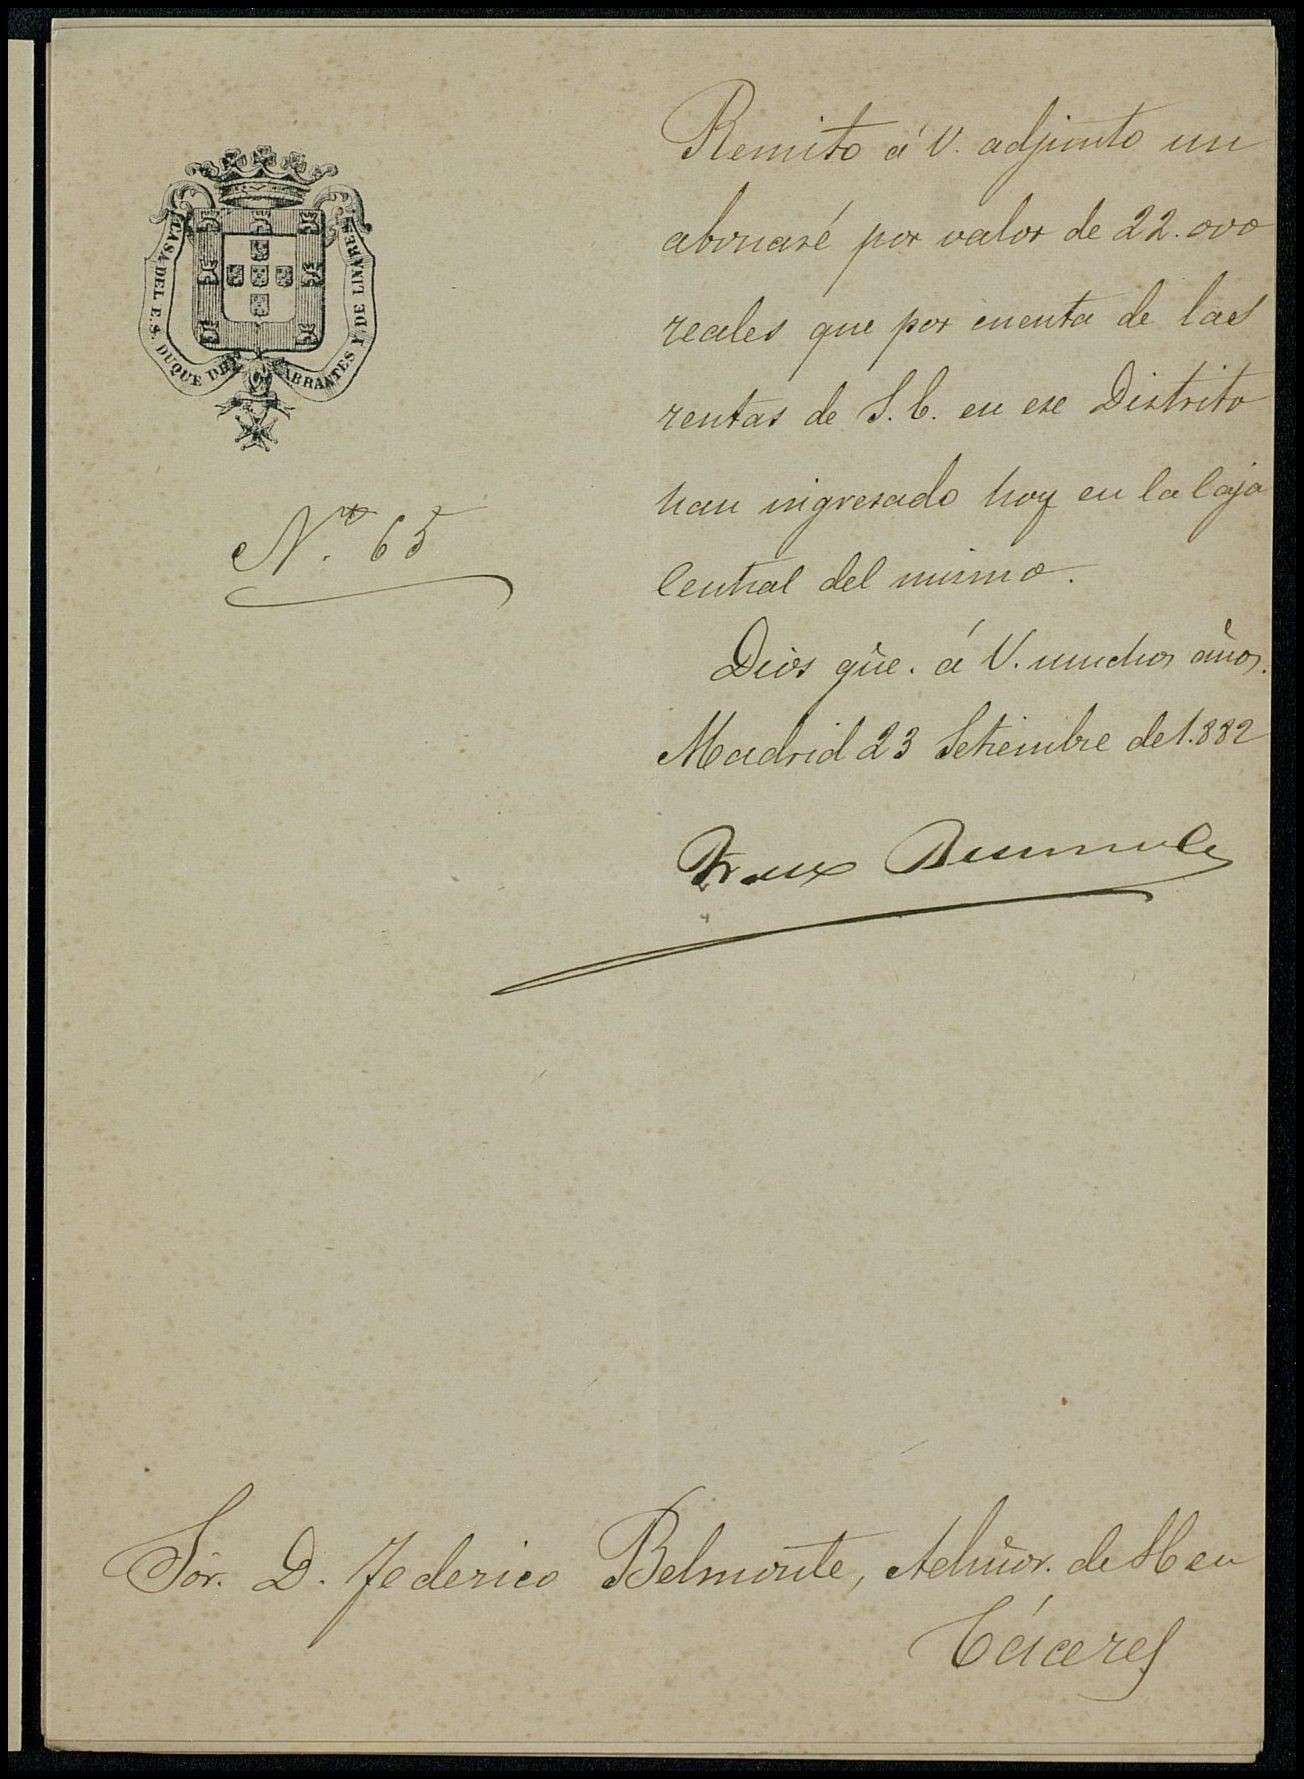 CASA DEL E.S. DUQUE DE ABRANTES Y DE LINARES
N.º 65
Remito á V. adjunto un
abonaré por valor de 22.000
reales que por cuenta de las
rentas de S.E. en ese Distrito
han ingresado hoy en la Caja
Central del mismo.
Dios güe. á V. muchos años.
Madrid 23 Setiembre de 1.882
Sõr. D. Federico Belmonte, Admõr. de SE en
Cáceres